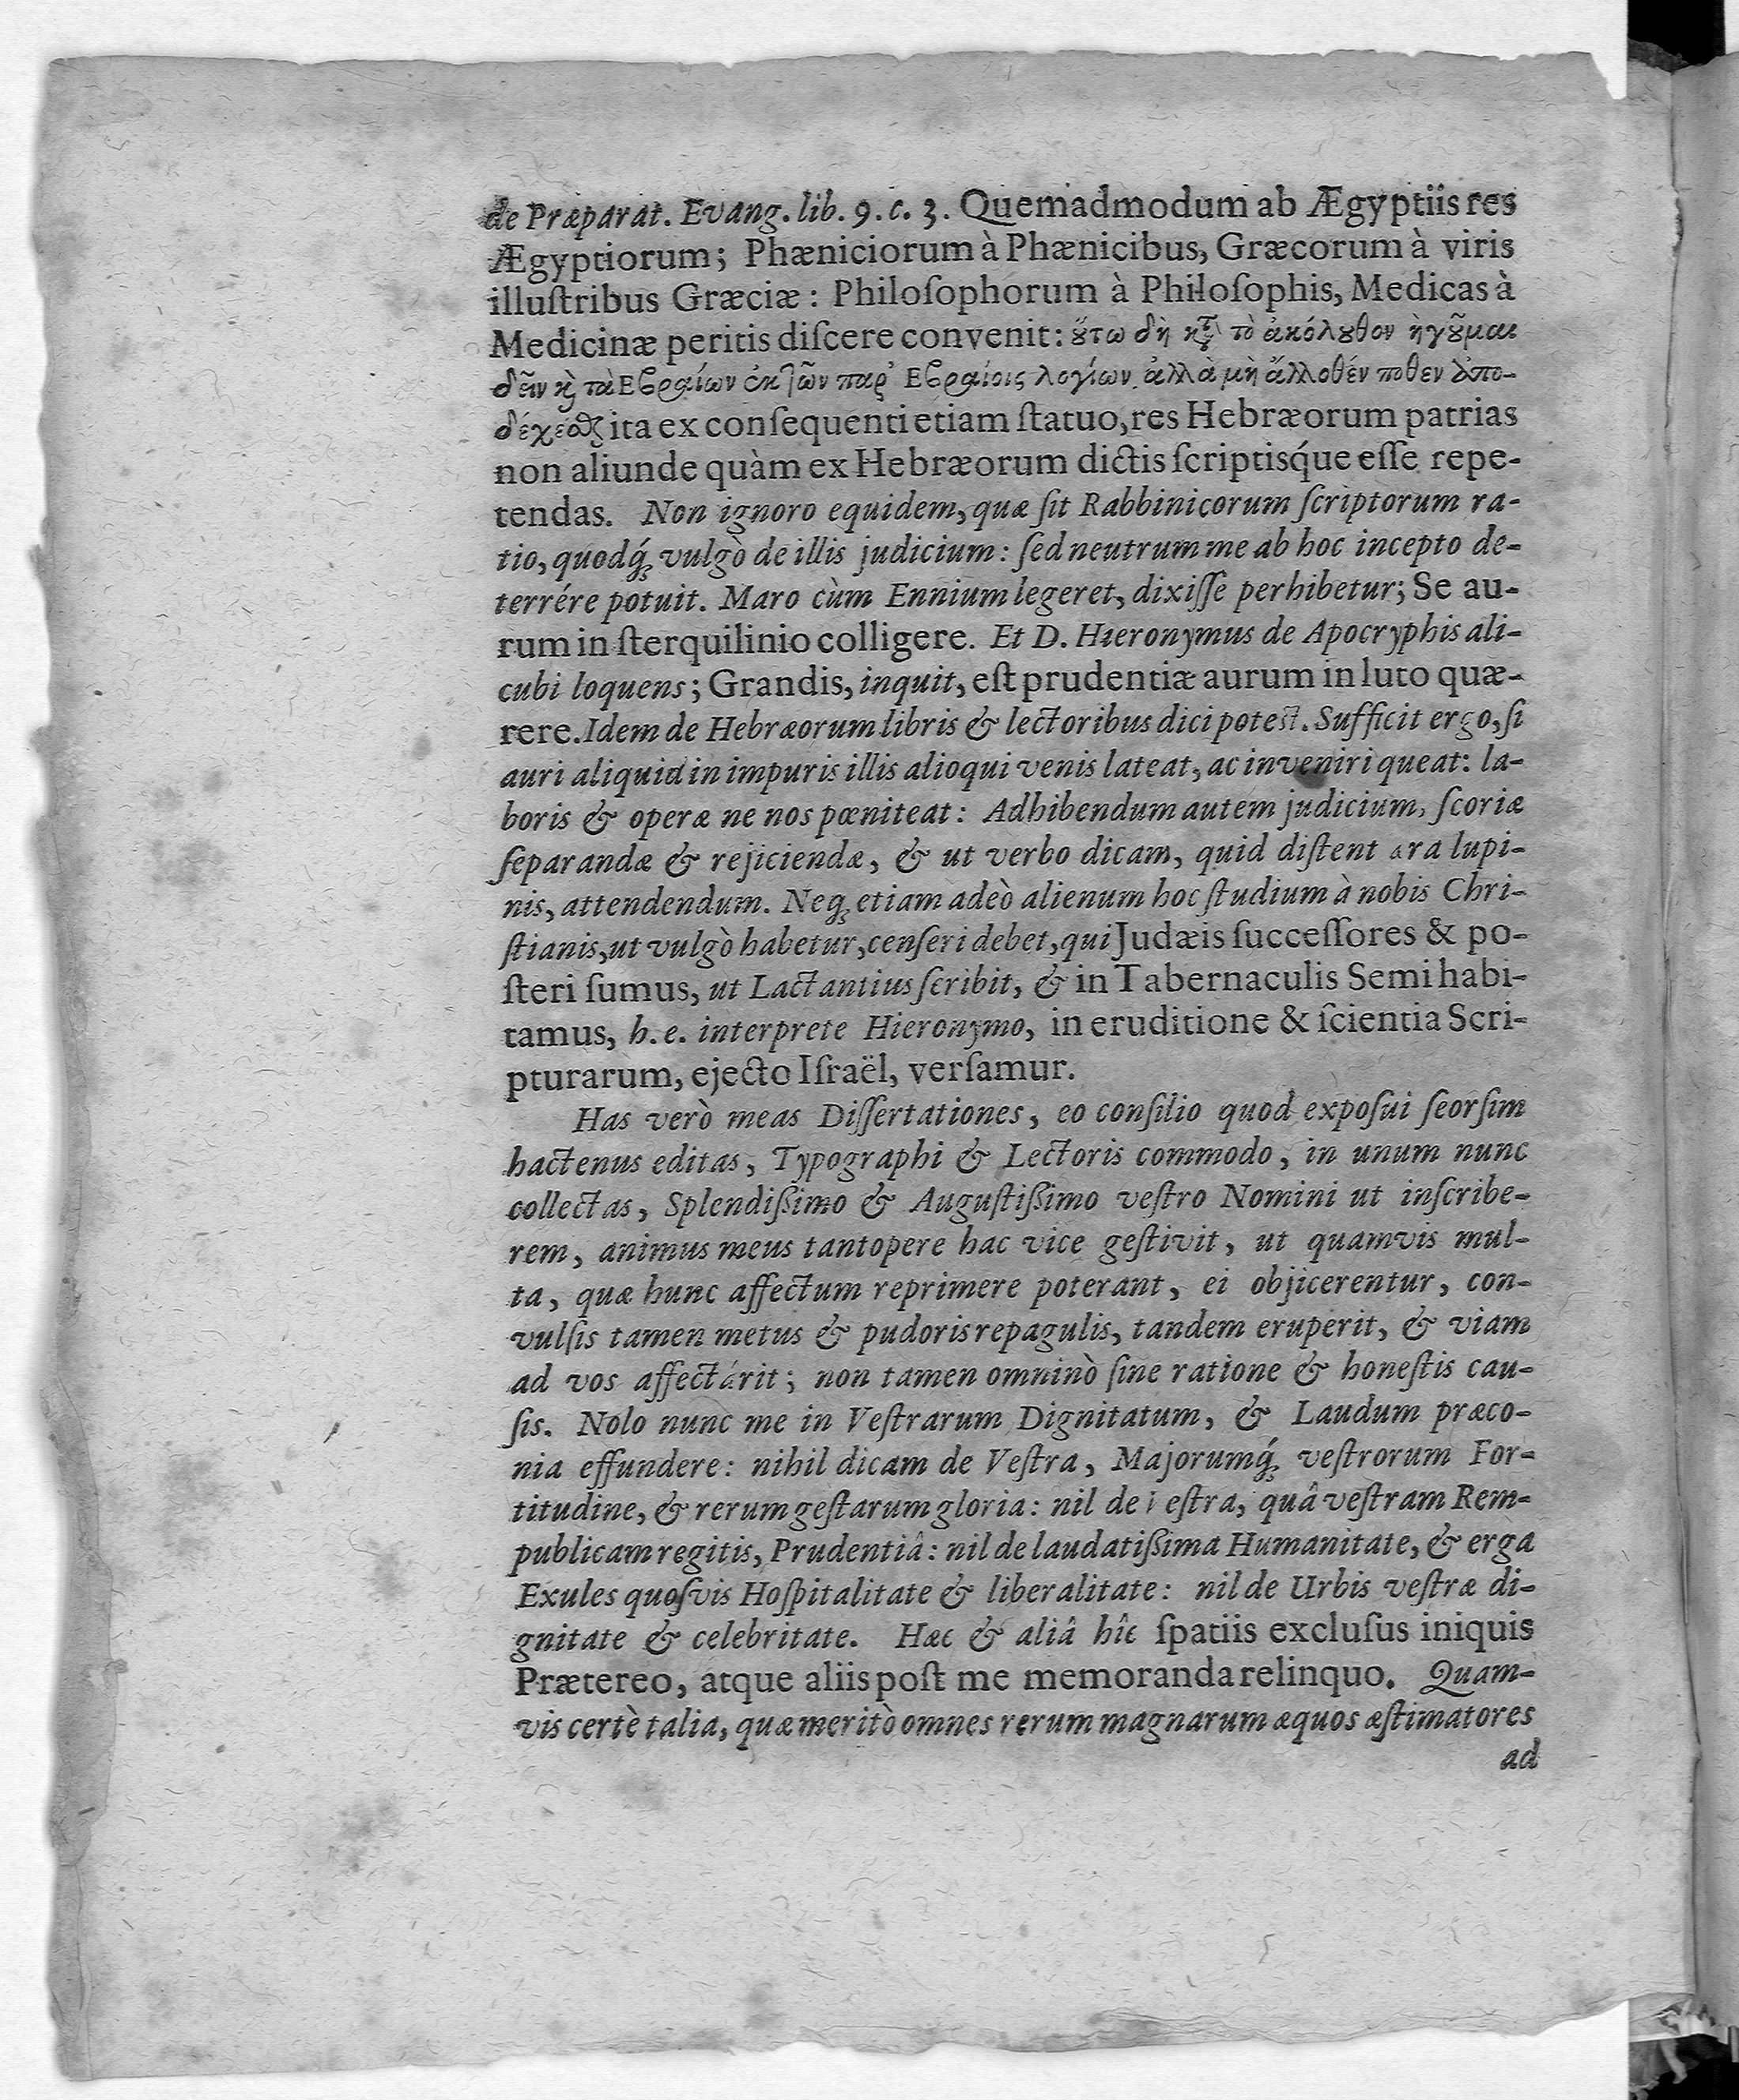 de Præparat. Evang. lib. 9. c. 3. Quemadmodum ab Ægyptiis res
Ægyptiorum; Phæniciorum à Phænicibus, Græcorum à viris
illuſtribus Græciæ: Philoſophorum à Philoſophis, Medicas à
Medicinæ peritis diſcere convenit: ȣ̔́τω δὴ κτ̀ τὸ ἀκόλȣθον ἡγȣ͂μαι
δεῖν κ̀ τὰ Εβραίων ἐκ τῶν παρ᾽ Εβραίοις λογίων ἀλλὰ μὴ ἄλλοθέν ποθεν ἀπο-
δέχεσθ ita ex conſequenti etiam ſtatuo, res Hebræorum patrias
non aliunde quàm ex Hebræorum dictis ſcriptisq́ue eſſe repe-
tendas. Non ignoro equidem, quæ ſit Rabbinicorum ſcriptorum ra-
tio, quodq́; vulgò de illis judicium: ſed neutrum me ab hoc incepto de-
terrére potuit. Maro cùm Ennium legeret, dixiſſe perhibetur; Se au-
rum in ſterquilinio colligere. Et D. Hieronymus de Apocryphis ali-
cubi loquens; Grandis, inquit, eſt prudentiæ aurum in luto quæ-
rere. Idem de Hebræorum libris & lectoribus dici poteſt. Sufficit ergo, ſi
auri aliquid in impuris illis alioqui venis lateat, ac inveniri queat: la-
boris & operæ ne nos pœniteat: Adhibendum autem judicium, ſcoriæ
ſeparandæ & rejiciendæ, & ut verbo dicam, quid diſtent æra lupi-
nis, attendendum. Neq; etiam adeò alienum hoc ſtudium à nobis Chri-
ſtianis, ut vulgò habetur, cenſeri debet, qui Judæis ſucceſſores & po-
ſteri ſumus, ut Lactantius ſcribit, & in Tabernaculis Semi habi-
tamus, h. e. interprete Hieronymo, in eruditione & ſcientia Scri-
pturarum, ejecto Iſraël, verſamur.
Has verò meas Diſſertationes, eo conſilio quod expoſui ſeorſim
hactenus editas, Typographi & Lectoris commodo, in unum nunc
collectas, Splendißimo & Auguſtißimo veſtro Nomini ut inſcribe-
rem, animus meus tantopere hac vice geſtivit, ut quamvis mul-
ta, quæ hunc affectum reprimere poterant, ei objicerentur, con-
vulſis tamen metus & pudoris repagulis, tandem eruperit, & viam
ad vos affectárit; non tamen omninò ſine ratione & honeſtis cau-
ſis. Nolo nunc me in Veſtrarum Dignitatum, & Laudum præco-
nia effundere: nihil dicam de Veſtra, Majorumq́; veſtrorum For-
titudine, & rerum geſtarum gloria: nil de Veſtra, quâ veſtram Rem-
publicam regitis, Prudentiâ: nil de laudatißima Humanitate, & erga
Exules quoſvis Hoſpitalitate & liberalitate: nil de Urbis veſtræ di-
gnitate & celebritate. Hæc & aliâ hîc ſpatiis excluſus iniquis
Prætereo, atque aliis poſt me memoranda relinquo. Quam-
vis certè talia, quæ meritò omnes rerum magnarum æquos æſtimatores
ad